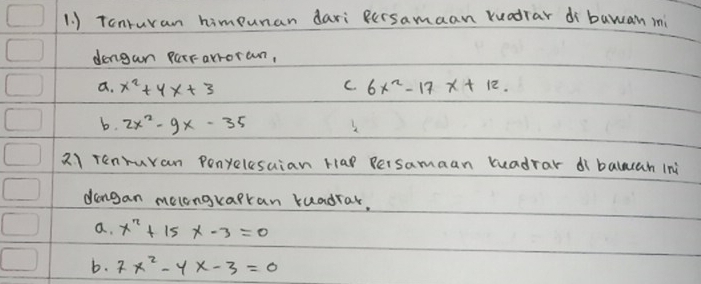 1.) Tentukan himpunan dari Persamaan kuadrat di bawah ini
dengan Pemfaktoran.
a. x² + 4x + 3 c. 6x² - 17 x + 12.
b. 2x² - 9x - 35
2) Tentukan Penyelesaian tiap Persamaan kuadrat di bawah ini
dengan melengkapkan kuadrat.
a. x² + 15 x - 3 = 0
b. 7 x² - 4 x - 3 = 0